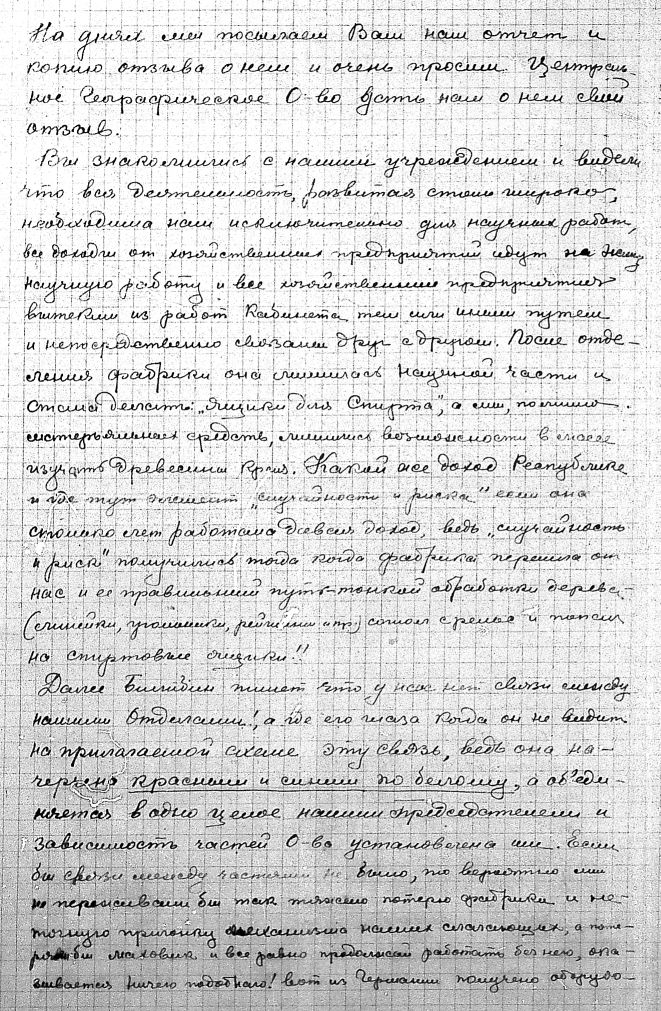 На днях мы посылаем Вам наш отчет и
копию отзыва о нем и очень просим Централь-
ное Географическое О-во дать нам о нем свой
отзыв.
Вы знакомились с нашим учреждением и видели
что вся деятельность, развитая столь широко,
необходима нам исключительно для научных работ,
все доходы от хозяйственных предприятий идут на нашу
научную работу и все хозяйственныя предприятия
вытекли из работ Кабинета тем или иным путем
и непосредственно связаны друг с другом. После отде-
ления фабрики она лишилась научной части и
стала делать: "Ящики для Спирта", а мы, помимо
матерьяльных средств, лишились возможности в массе
изучать древесины края. Какой же доход Республике
и где тут элемент "случайности и риска" если она
сколько лет работала давая доход, ведь "случайность
и риск" получились тогда когда фабрика перешла от
нас и ее правильный путь-тонкой обработки дерева,
(линейки, угольники, рейшины и пр) сошол с рельс и попал
на спиртовые ящики!!
Далее Билибин пишет что у нас нет связи между
нашими Отделами!, а где его глаза когда он не видит
на прилагаемой схеме эту связь, ведь она на-
черчено красным и синим по белому, а объеди-
няется в одно целое нашим председателем и
зависимость частей О-ва установлена им. Если
бы связи между частями не было, то вероятно мы
не переживали бы так тяжело потерю фабрики и не-
точную пригонку механизма наших слагающих, а поте-
ряли бы маховик и все равно продолжали работать без него, ока-
зывается ничего подобного! вот из Германии получено оборудо-